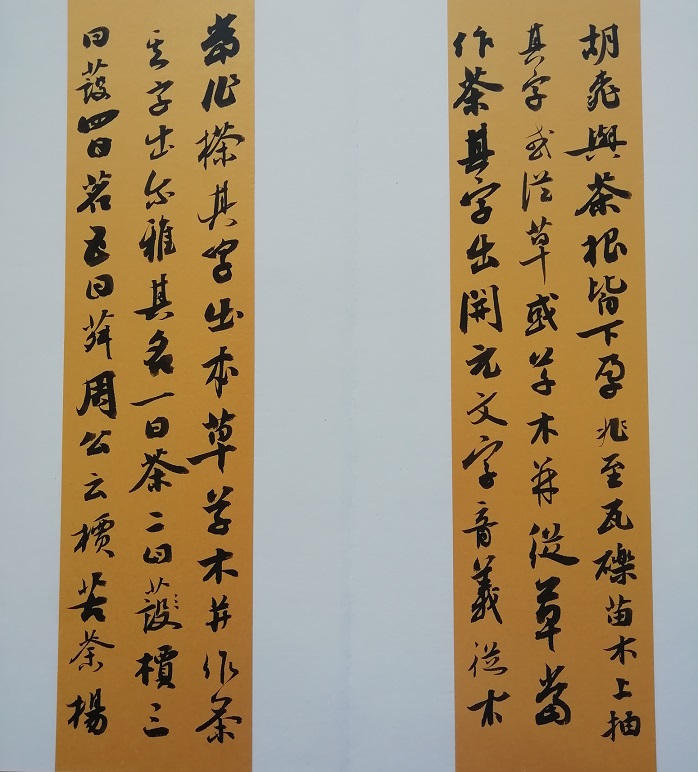 胡桃與茶根皆下孕兆至瓦礫苗木上抽
其字或從草或草木并從草當
作茶其字出開元文字音義從木
當作搽其字出本草草木并作荼
其字出爾雅其名一曰茶二曰蔎檟三
曰蔎四曰茗五曰荈周公云檟苦荼楊